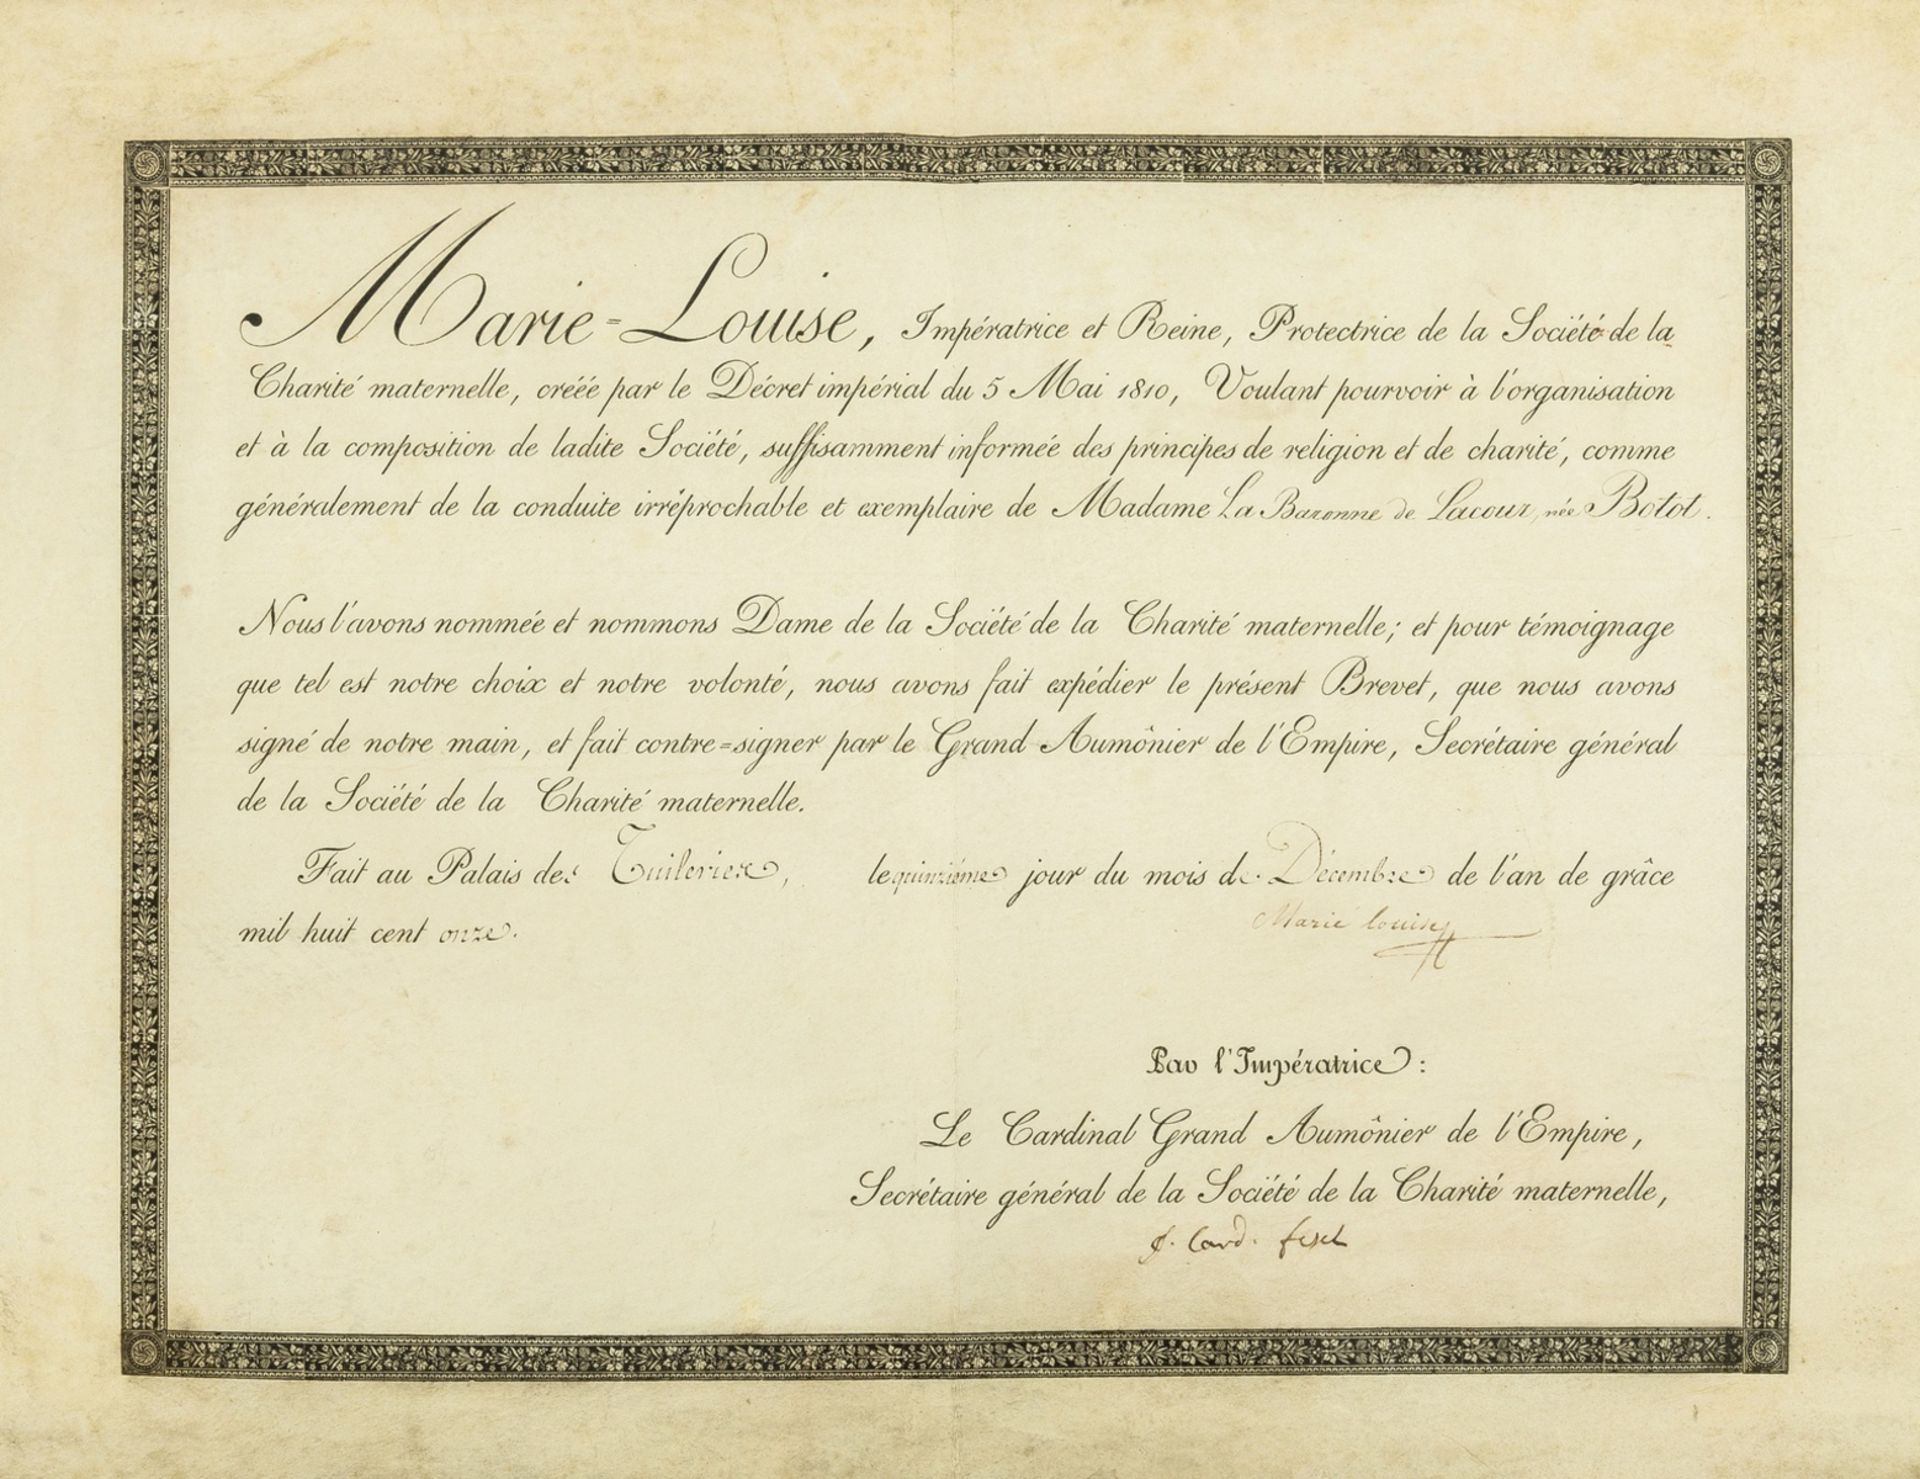 Marie=Louise, Impératrice et Reine, Protectrice de la Société de la
Charité maternelle, créée par le Décret impérial du 5 Mai 1810, Voulant pourvoir à l'organisation
et à la composition de ladite Société, suffisamment informée des principes de religion et de charité, comme
généralement de la conduite irréprochable et exemplaire de Madame La Baronne de Lacour, née Botot.
Nous l'avons nommée et nommons Dame de la Société de la Charité maternelle; et pour témoignage
que tel est notre choix et notre volonté, nous avons fait expédier le présent Brevet, que nous avons
signé de notre main, et fait contre=signer par le Grand Aumônier de l'Empire, Secrétaire général
de la Société de la Charité maternelle.
Fait au Palais des Tuileries, le quinzième jour du mois de Décembre de l'an de grâce
mil huit cent onze.
Marie Louise
Par l'Impératrice :
Le Cardinal Grand Aumônier de l'Empire,
Secrétaire général de la Société de la Charité maternelle,
J. Card. fesch